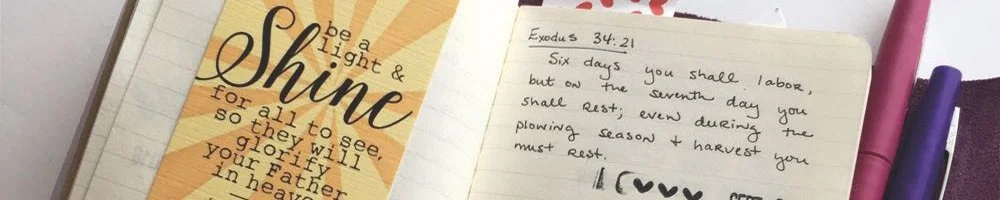 be a
light &
Shine
for all to see,
so they will
glorify
your Father
in
Exodus 34:21
Six days you shall labor,
but on the seventh day you
shall rest; even during the
plowing season + harvest you
must rest.